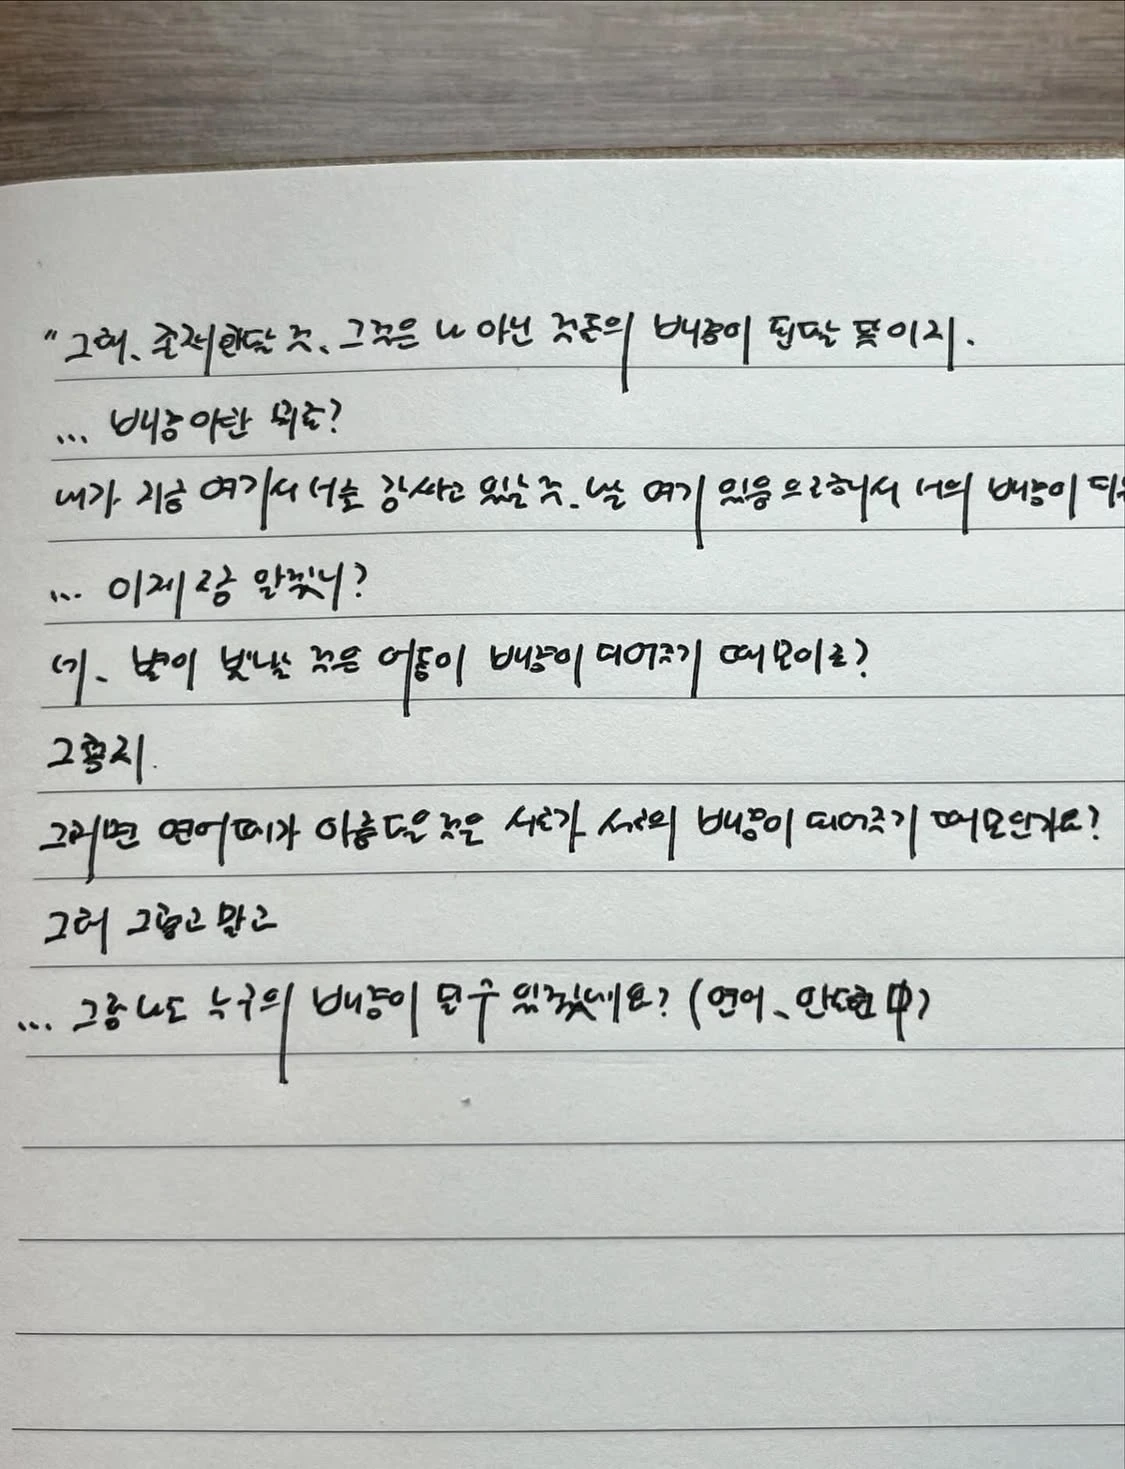 "그래, 존재한다는 것, 그것은 나 아닌 것들의 배경이 된다는 뜻이지.
... 배경이란 뭐죠?
내가 지금 여기서 너를 감싸고 있는 것, 나는 여기 있음으로 해서 너의 배경이 되
... 이제 조금 알겠니?
네, 별이 빛나는 것은 어둠이 배경이 되어주기 때문이죠?
그렇지.
그러면 연어떼가 아름다운 것은 서로가 서로의 배경이 되어주기 때문인가요?
그래 그렇고 말고
... 그럼 나도 누구의 배경이 될 수 있겠네요? (연어, 안도현 中)